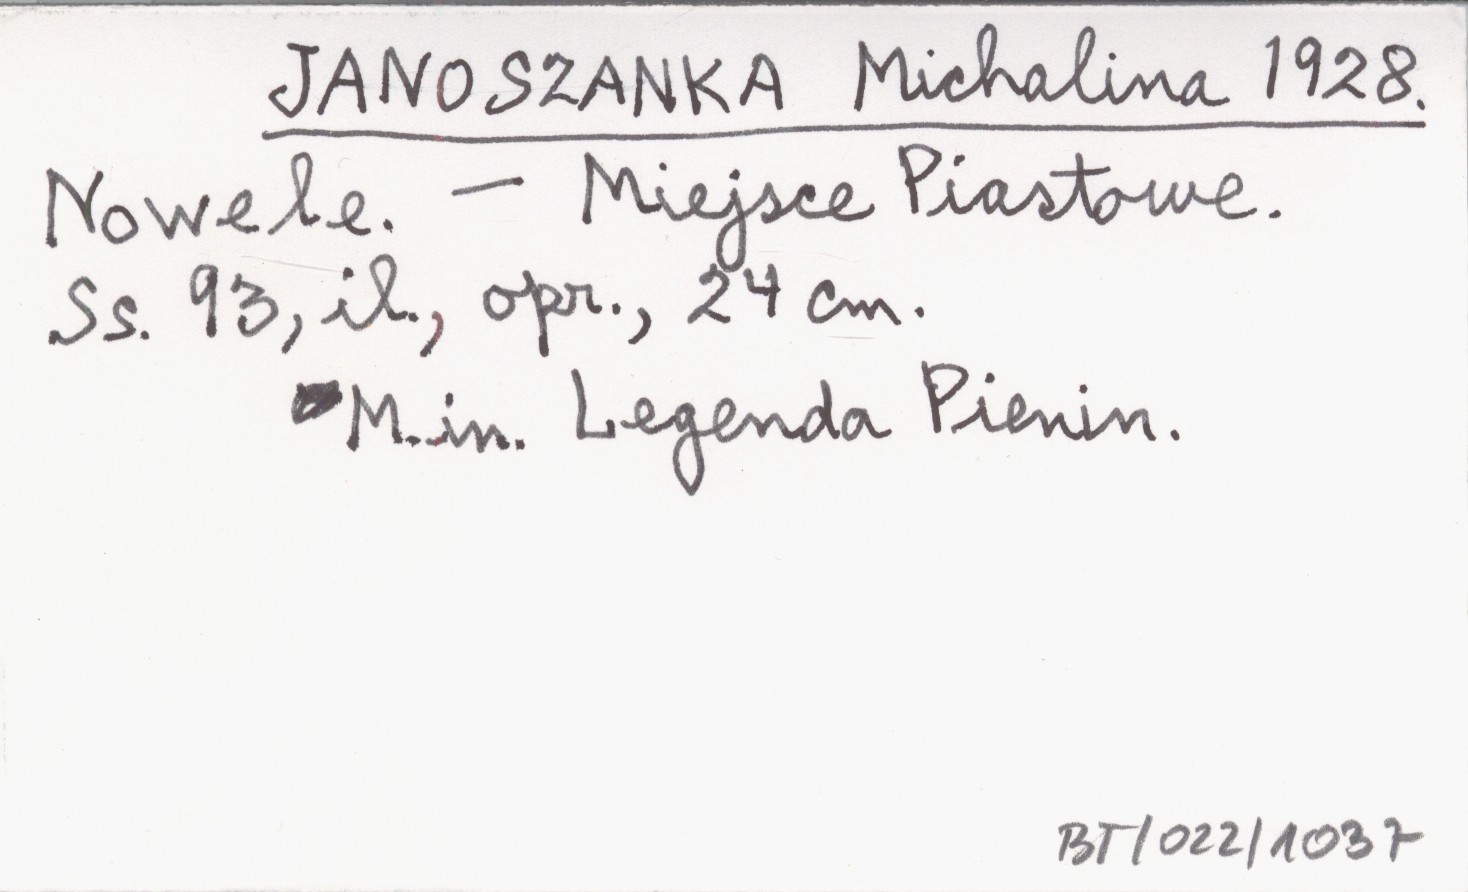 JANOSZANKA Michalina 1928.
Nowele. — Miejsce Piastowe.
Ss. 93, il., opr., 24 cm.
M.in. Legenda Pienin.
BT/022/1037